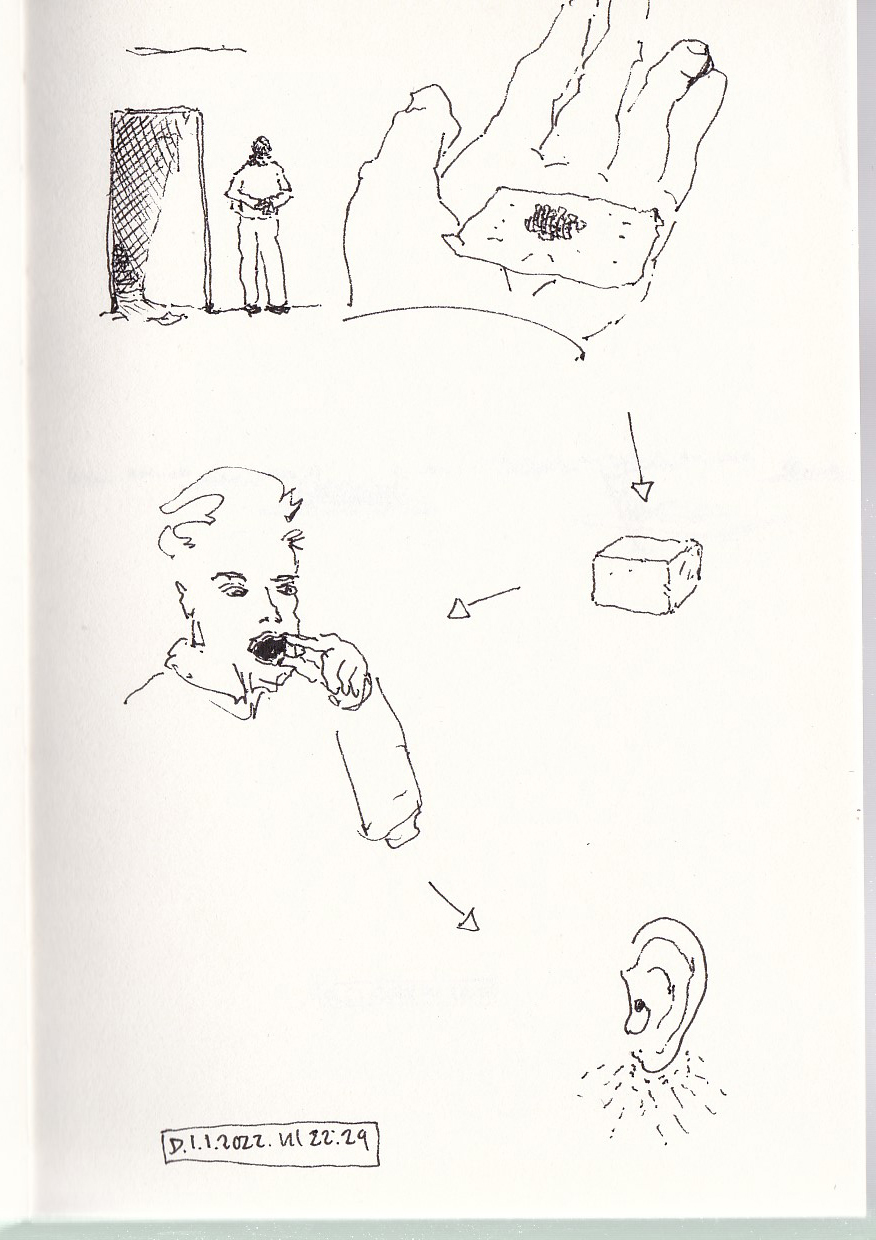 D.1.1.2022. Kl 22:29